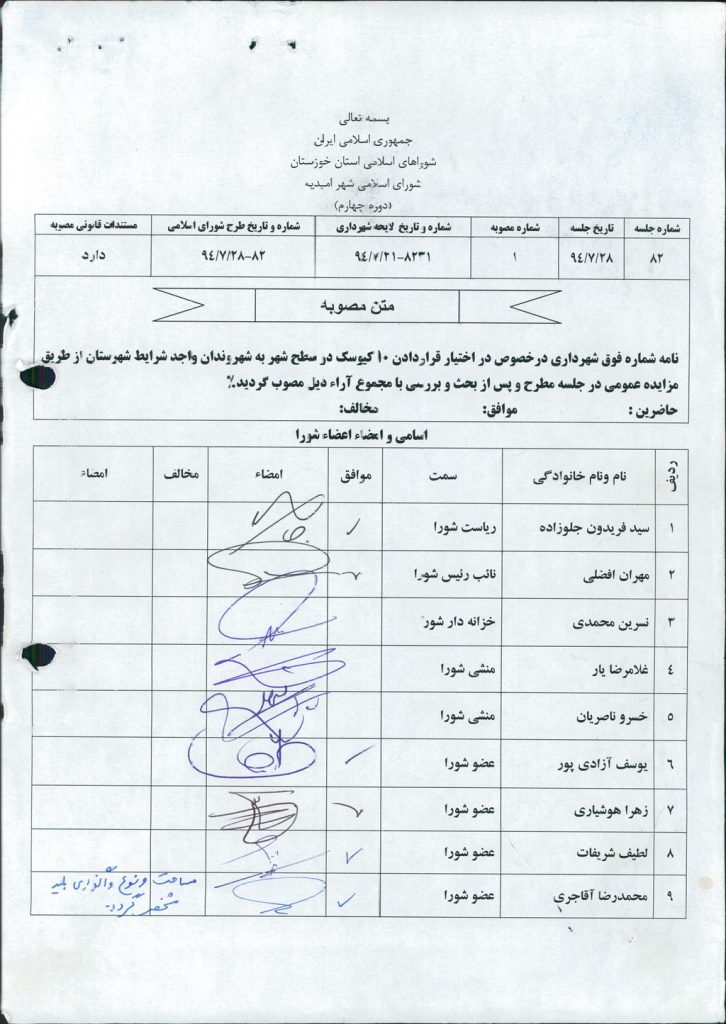 بسمه تعالی
جمهوری اسلامی ایران
شوراهای اسلامی استان خوزستان
شورای اسلامی شهر امیدیه
(دوره چهارم)
شماره جلسه تاریخ جلسه شماره مصوبه شماره و تاریخ لایحه شهرداری شماره و تاریخ طرح شورای اسلامی مستندات قانونی مصوبه
۸۲ ۹٤/۷/۲۸ ۱ ۹٤/۷/۲۱-۸۲۳۱ ۹٤/۷/۲۸-۸۲ دارد
متن مصوبه
نامه شماره فوق شهرداری درخصوص در اختیار قراردادن ۱۰ کیوسک در سطح شهر به شهروندان واجد شرایط شهرستان از طریق
مزایده عمومی در جلسه مطرح و پس از بحث و بررسی با مجموع آراء ذیل مصوب گردید٪
حاضرین : موافق: مخالف:
اسامی و امضاء اعضاء شورا
ردیف نام ونام خانوادگی سمت موافق امضاء مخالف امضاء
۱ سید فریدون جلوزاده ریاست شورا ✓
۲ مهران افضلی نائب رئیس شورا ✓
۳ نسرین محمدی خزانه دار شور
٤ غلامرضا یار منشی شورا
۵ خسرو ناصریان منشی شورا
۶ یوسف آزادی پور عضو شورا ✓
۷ زهرا هوشیاری عضو شورا ✓
۸ لطیف شریفات عضو شورا ✓
۹ محمدرضا آقاجری عضو شورا ✓
مساحت و نوع واگذاری باید
مشخص گردد.